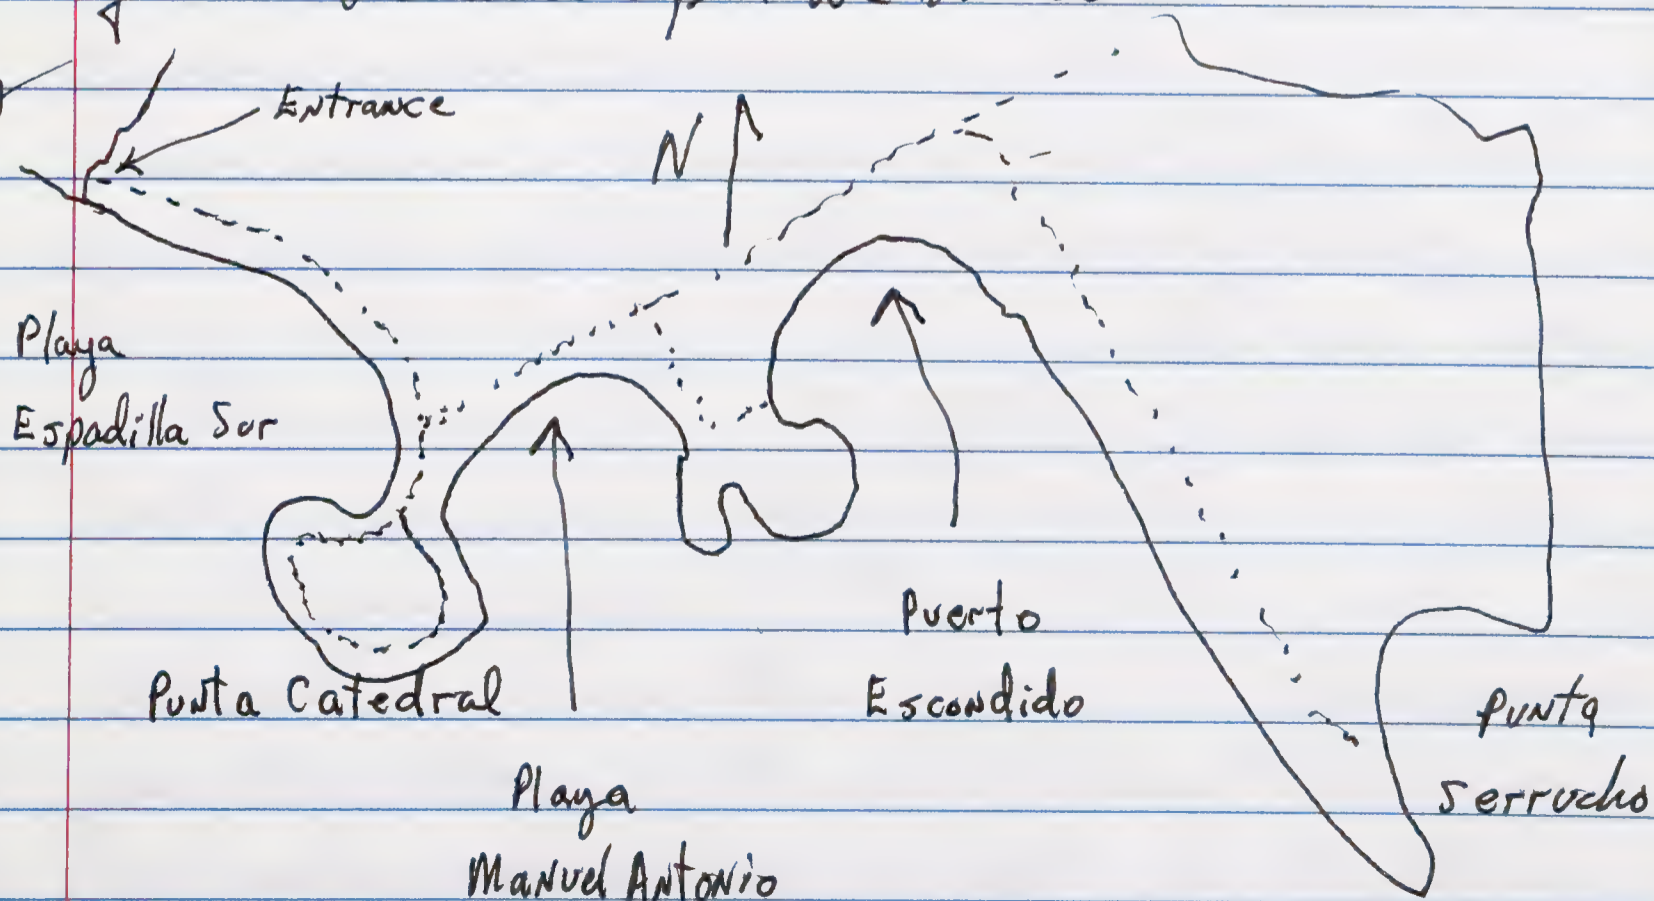 Entrance
N
Playa
Espadilla Sur
Punta Catedral
Playa
Manuel Antonio
Puerto
Escondido
Punta
Serrucho